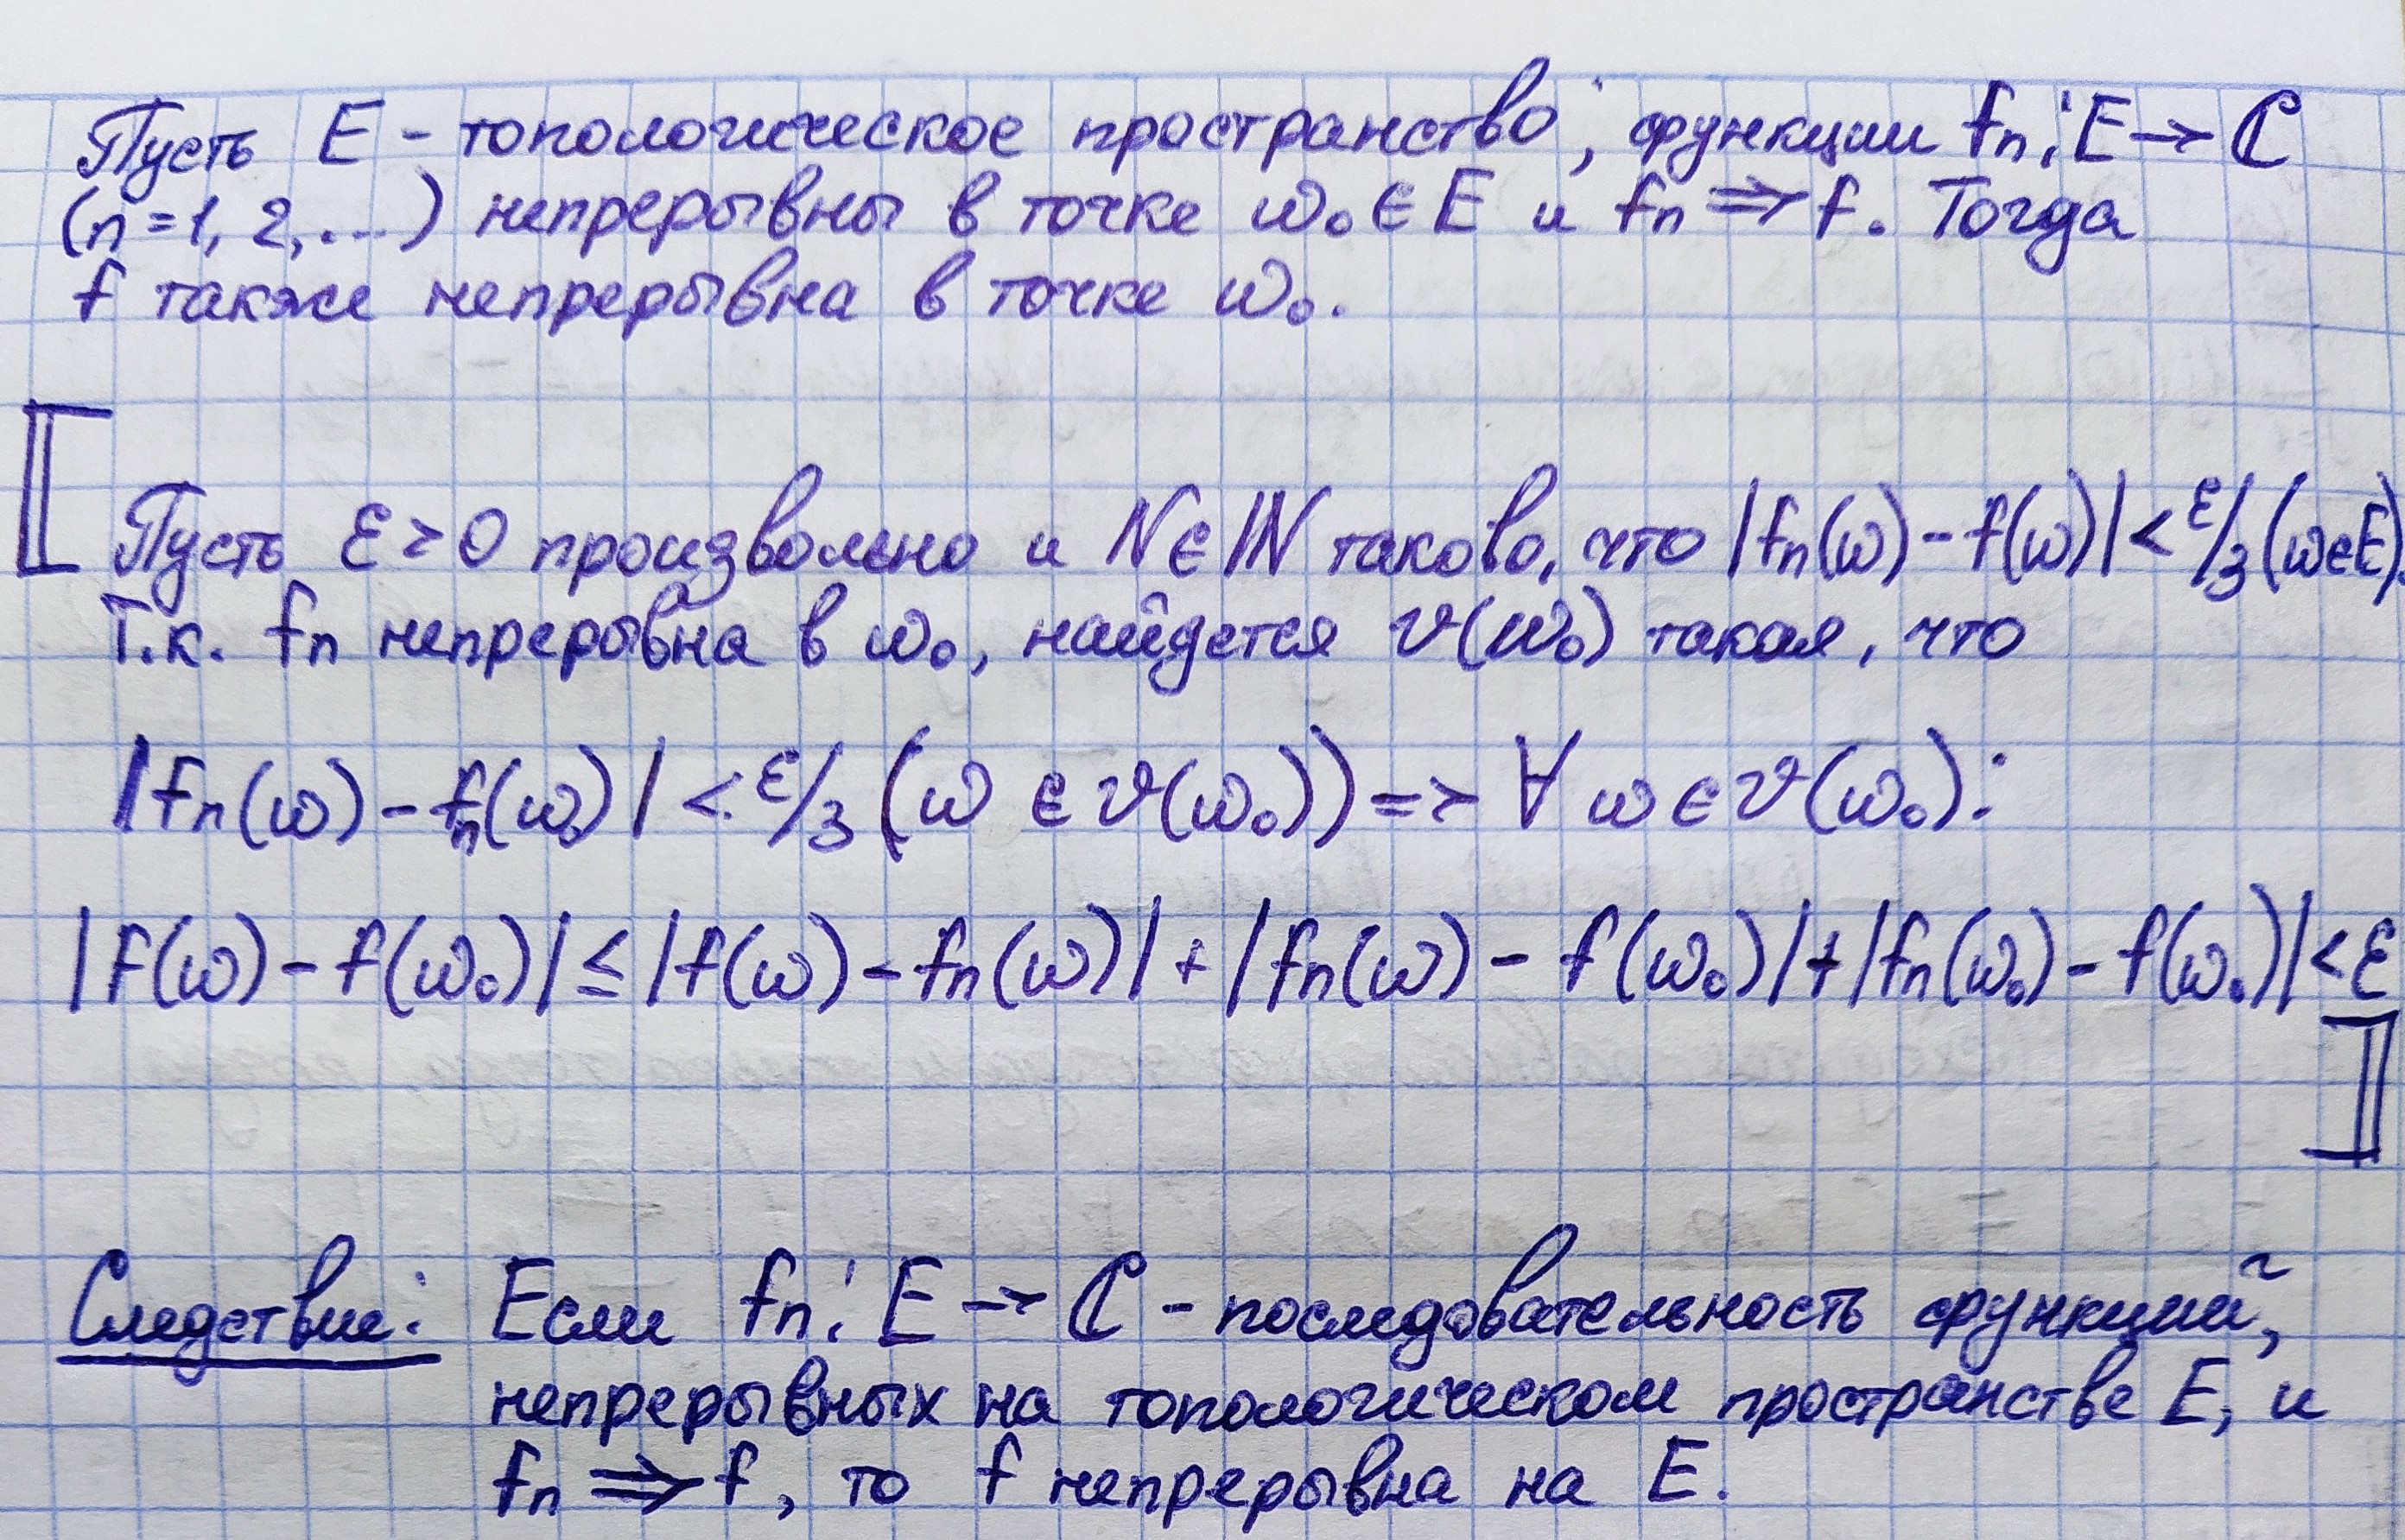 Пусть E - топологическое пространство, функции fₙ: E → ℂ
(n = 1, 2, ...) непрерывны в точке ω₀ ∈ E и fₙ ⇉ f. Тогда
f также непрерывна в точке ω₀.
Пусть ε > 0 произвольно и N ∈ ℕ таково, что |fₙ(ω) - f(ω)| < ε/3 (ω ∈ E).
Т.к. fₙ непрерывна в ω₀, найдется 𝒱(ω₀) такая, что
|fₙ(ω) - fₙ(ω₀)| < ε/3 (ω ∈ 𝒱(ω₀)) => ∀ ω ∈ 𝒱(ω₀):
|f(ω) - f(ω₀)| ≤ |f(ω) - fₙ(ω)| + |fₙ(ω) - f(ω₀)| + |fₙ(ω₀) - f(ω₀)| < ε
Следствие: Если fₙ: E → ℂ - последовательность функций,
непрерывных на топологическом пространстве E, и
fₙ ⇉ f, то f непрерывна на E.